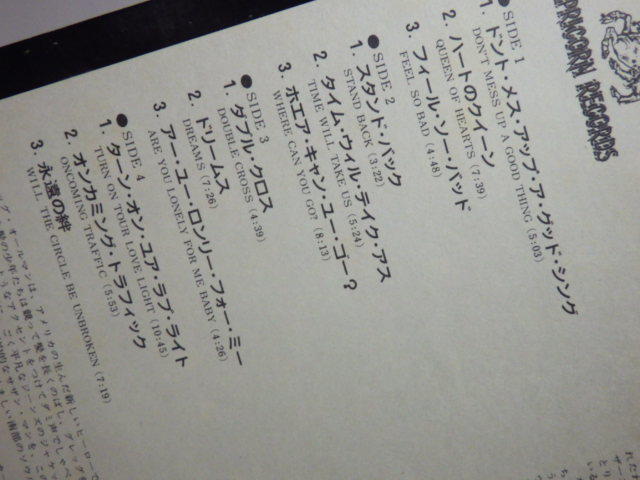 CAPRICORN RECORDS
●SIDE 1
1. ドント・メス・アップ・ア・グッド・シング
DON'T MESS UP A GOOD THING (5:03)
2. ハートのクイーン
QUEEN OF HEARTS (7:39)
3. フィール・ソー・バッド
FEEL SO BAD (4:48)
●SIDE 2
1. スタンド・バック
STAND BACK (3:22)
2. タイム・ウィル・テイク・アス
TIME WILL TAKE US (5:24)
3. ホエア・キャン・ユー・ゴー?
WHERE CAN YOU GO? (8:13)
●SIDE 3
1. ダブル・クロス
DOUBLE CROSS (4:39)
2. ドリームス
DREAMS (7:26)
3. アー・ユー・ロンリー・フォー・ミー
ARE YOU LONELY FOR ME BABY (4:26)
●SIDE 4
1. ターン・オン・ユア・ラブ・ライト
TURN ON YOUR LOVE LIGHT (10:45)
2. オンカミング・トラフィック
ONCOMING TRAFFIC (5:53)
3. 永遠の絆
WILL THE CIRCLE BE UNBROKEN (7:19)
オールマンは、アメリカの生んだ新しいヒーローで